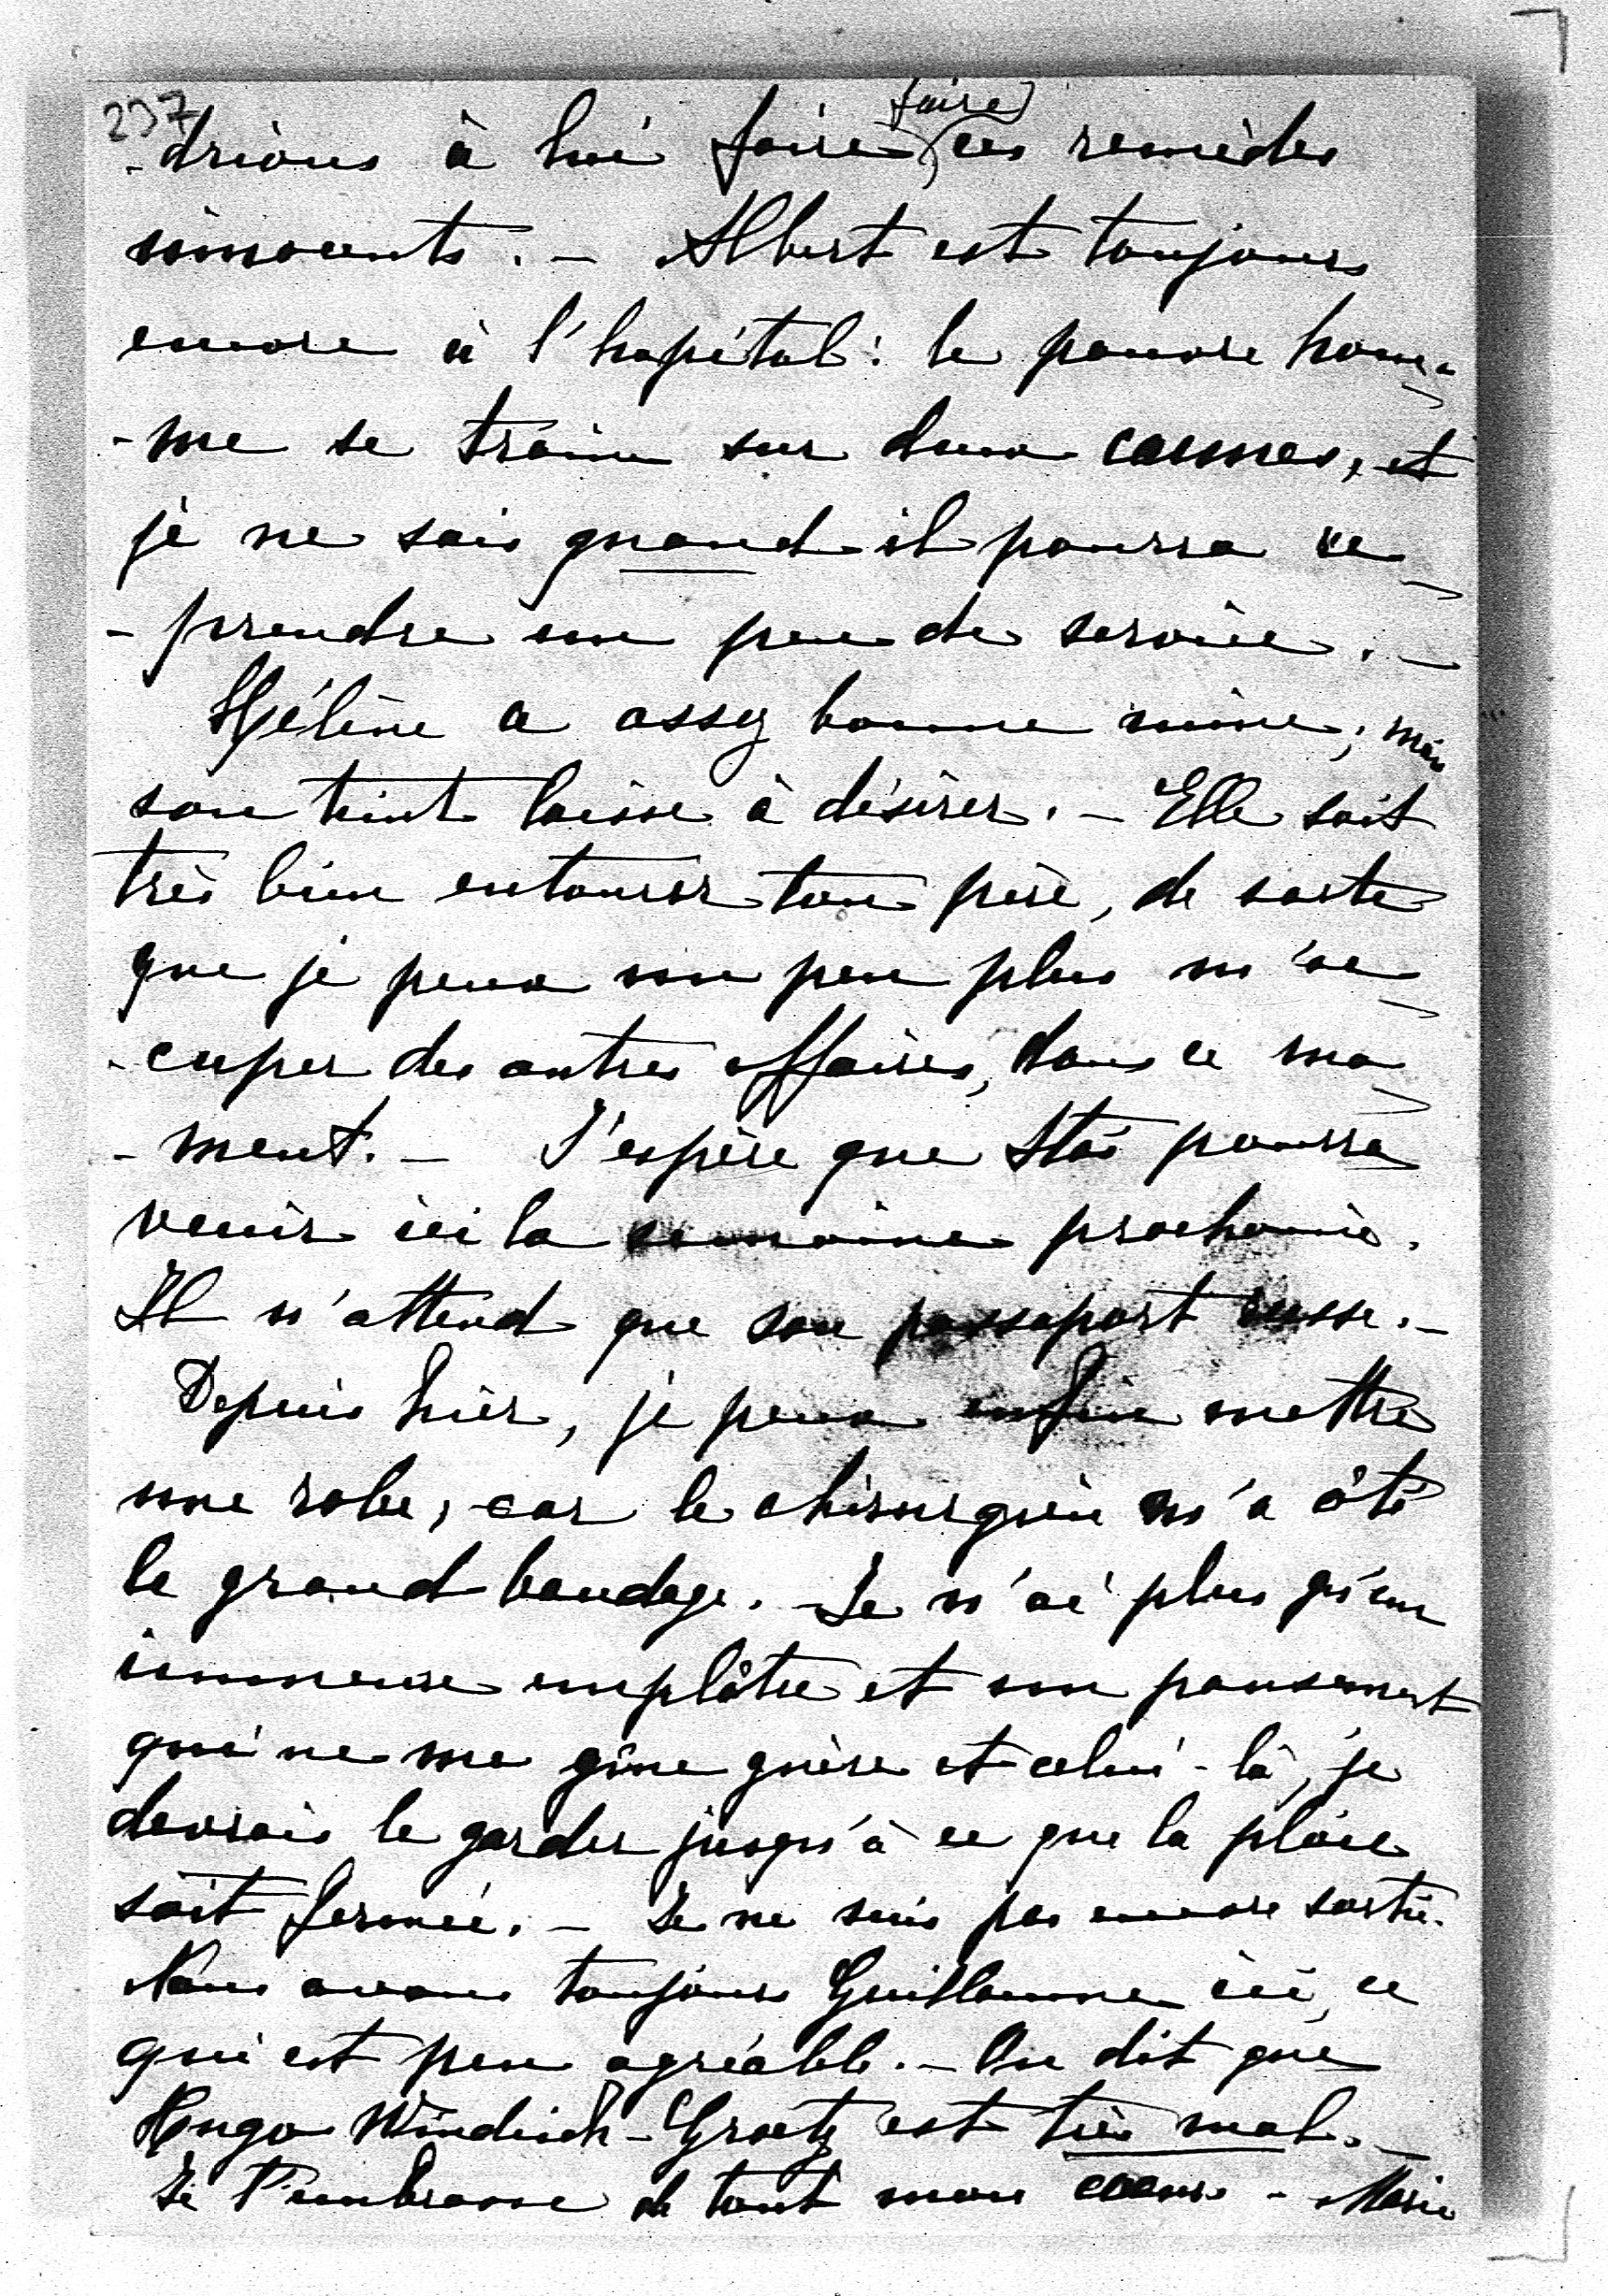 237
faire
-drions à lui faire ces remèdes
innocents. – Albert est toujours
encore à l'hôpital: le pauvre hom-
-me se traîne sur deux cannes, et
je ne sais quand il pourra re-
-prendre un peu de service. –
Hélène a assez bonne mine; mais
son teint laisse à désirer. – Elle sait
très bien entourer ton père, de sorte
que je peux un peu plus m'oc-
-cuper des autres affaires, dans ce mo-
-ment. – J'espère que Stas pourra
venir ici la semaine prochaine.
Il n'attend que son passeport russe. –
Depuis hier, je peux enfin mettre
une robe, car le chirurgien m'a ôté
le grand bandage. Je n'ai plus qu'un
immense emplâtre et un pansement
qui ne me gêne guère et celui-là, je
devrais le garder jusqu'à ce que la plaie
soit fermée. – Je ne suis pas encore sortie.
Nous avons toujours Guillaume ici, ce
qui est peu agréable. – On dit que
Hugo Windisch-Graetz est très mal. –
Je t'embrasse de tout mon coeur. – Marie